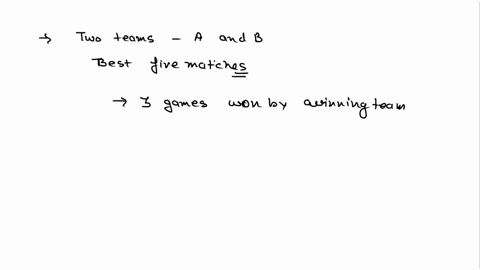 → Two teams - A and B
Best five matches
→ 3 games won by awinning team